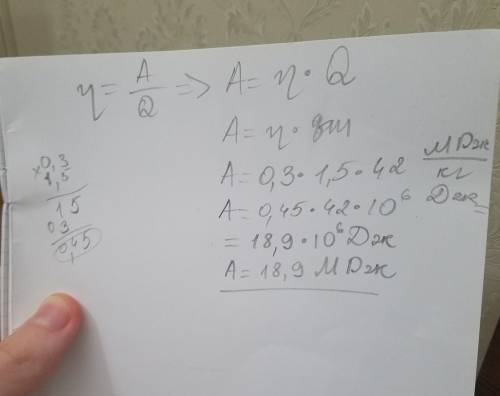 η = A/Q => A = η · Q
A = η · qm
A = 0,3 · 1,5 · 42 МДж/кг
A = 0,45 · 42 · 10⁶ Дж
= 18,9 · 10⁶ Дж
A = 18,9 МДж
×0,3
1,5
15
03
0,45